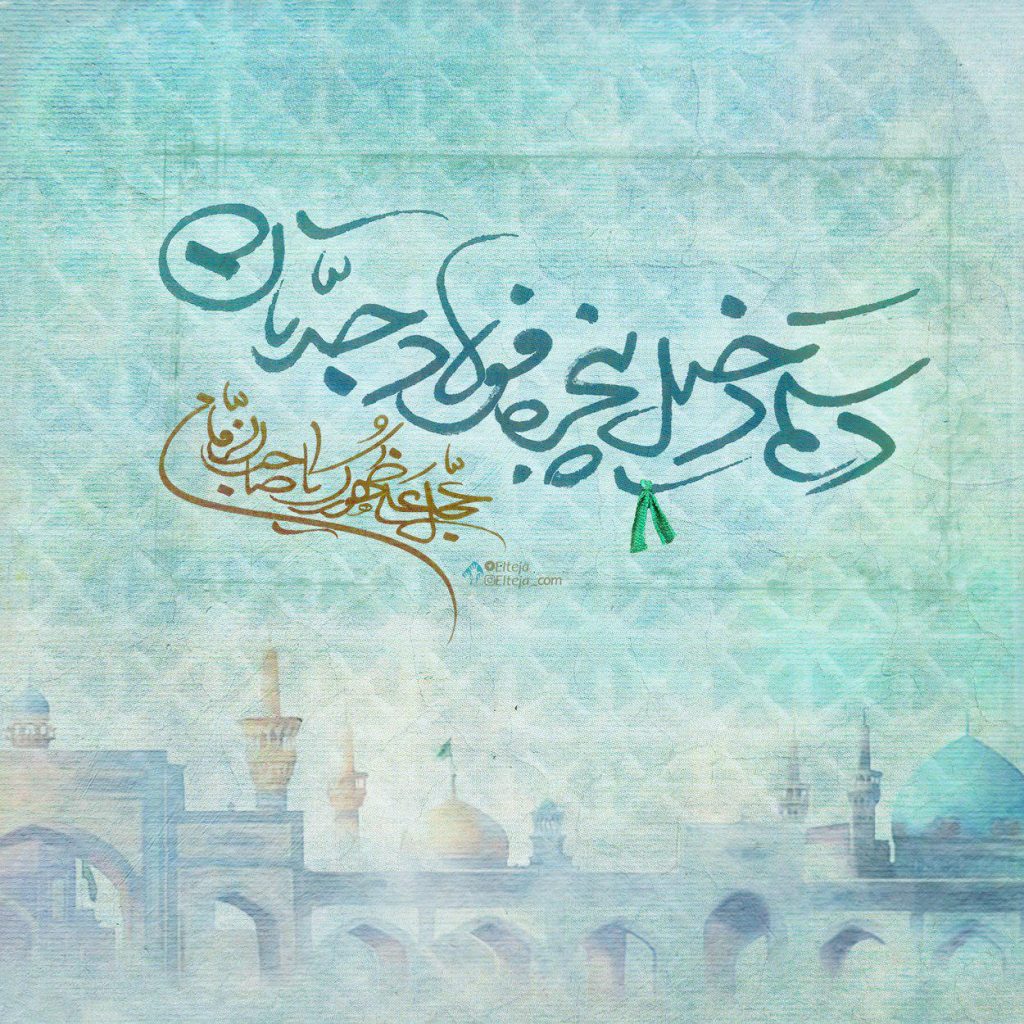 دستم دخیل پنجره فولاد جدتان
عجل علی ظهورک یا صاحب الزمان
@Elteja
@Elteja_com